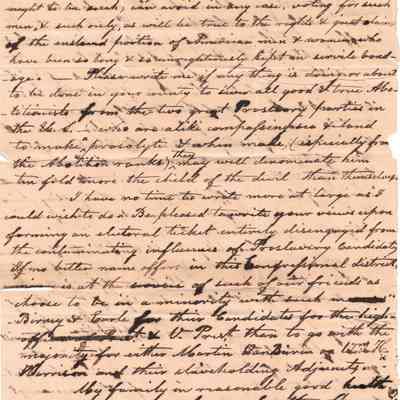 ought to be such, can avoid in any case, voting for such
men, & such only, as will be true to the rights & just claims
of the enslaved portion of American men & women who
have been so long & so unrighteously kept in servile bond-
age. – Please write me if any thing is doing or about
to be done in your county to turn all good & true Abo-
litionists from the two great Proslavery parties in
the U.S. – who are alike compass sea & land
to make proselyte & when made, (especially from
the Abolition ranks) they will denominate him
ten fold more the child of the devil than themselves.
I have no time to write more at large as I
could wish to do. Be pleased to write your views upon
forming an electoral ticket entirely disengaged from
the contaminating influence of Proslavery Candidates
If no better name offers in this Congressional district,
is at the service of such of our friends as
choose to be in a minority with such
Birney & Earle for their Candidates for the high
off & V. Prest than to go with the
majority for either Martin VanBuren or W. H.
Harrison and their slaveholding Adjuncts.
My family in reasonable good health